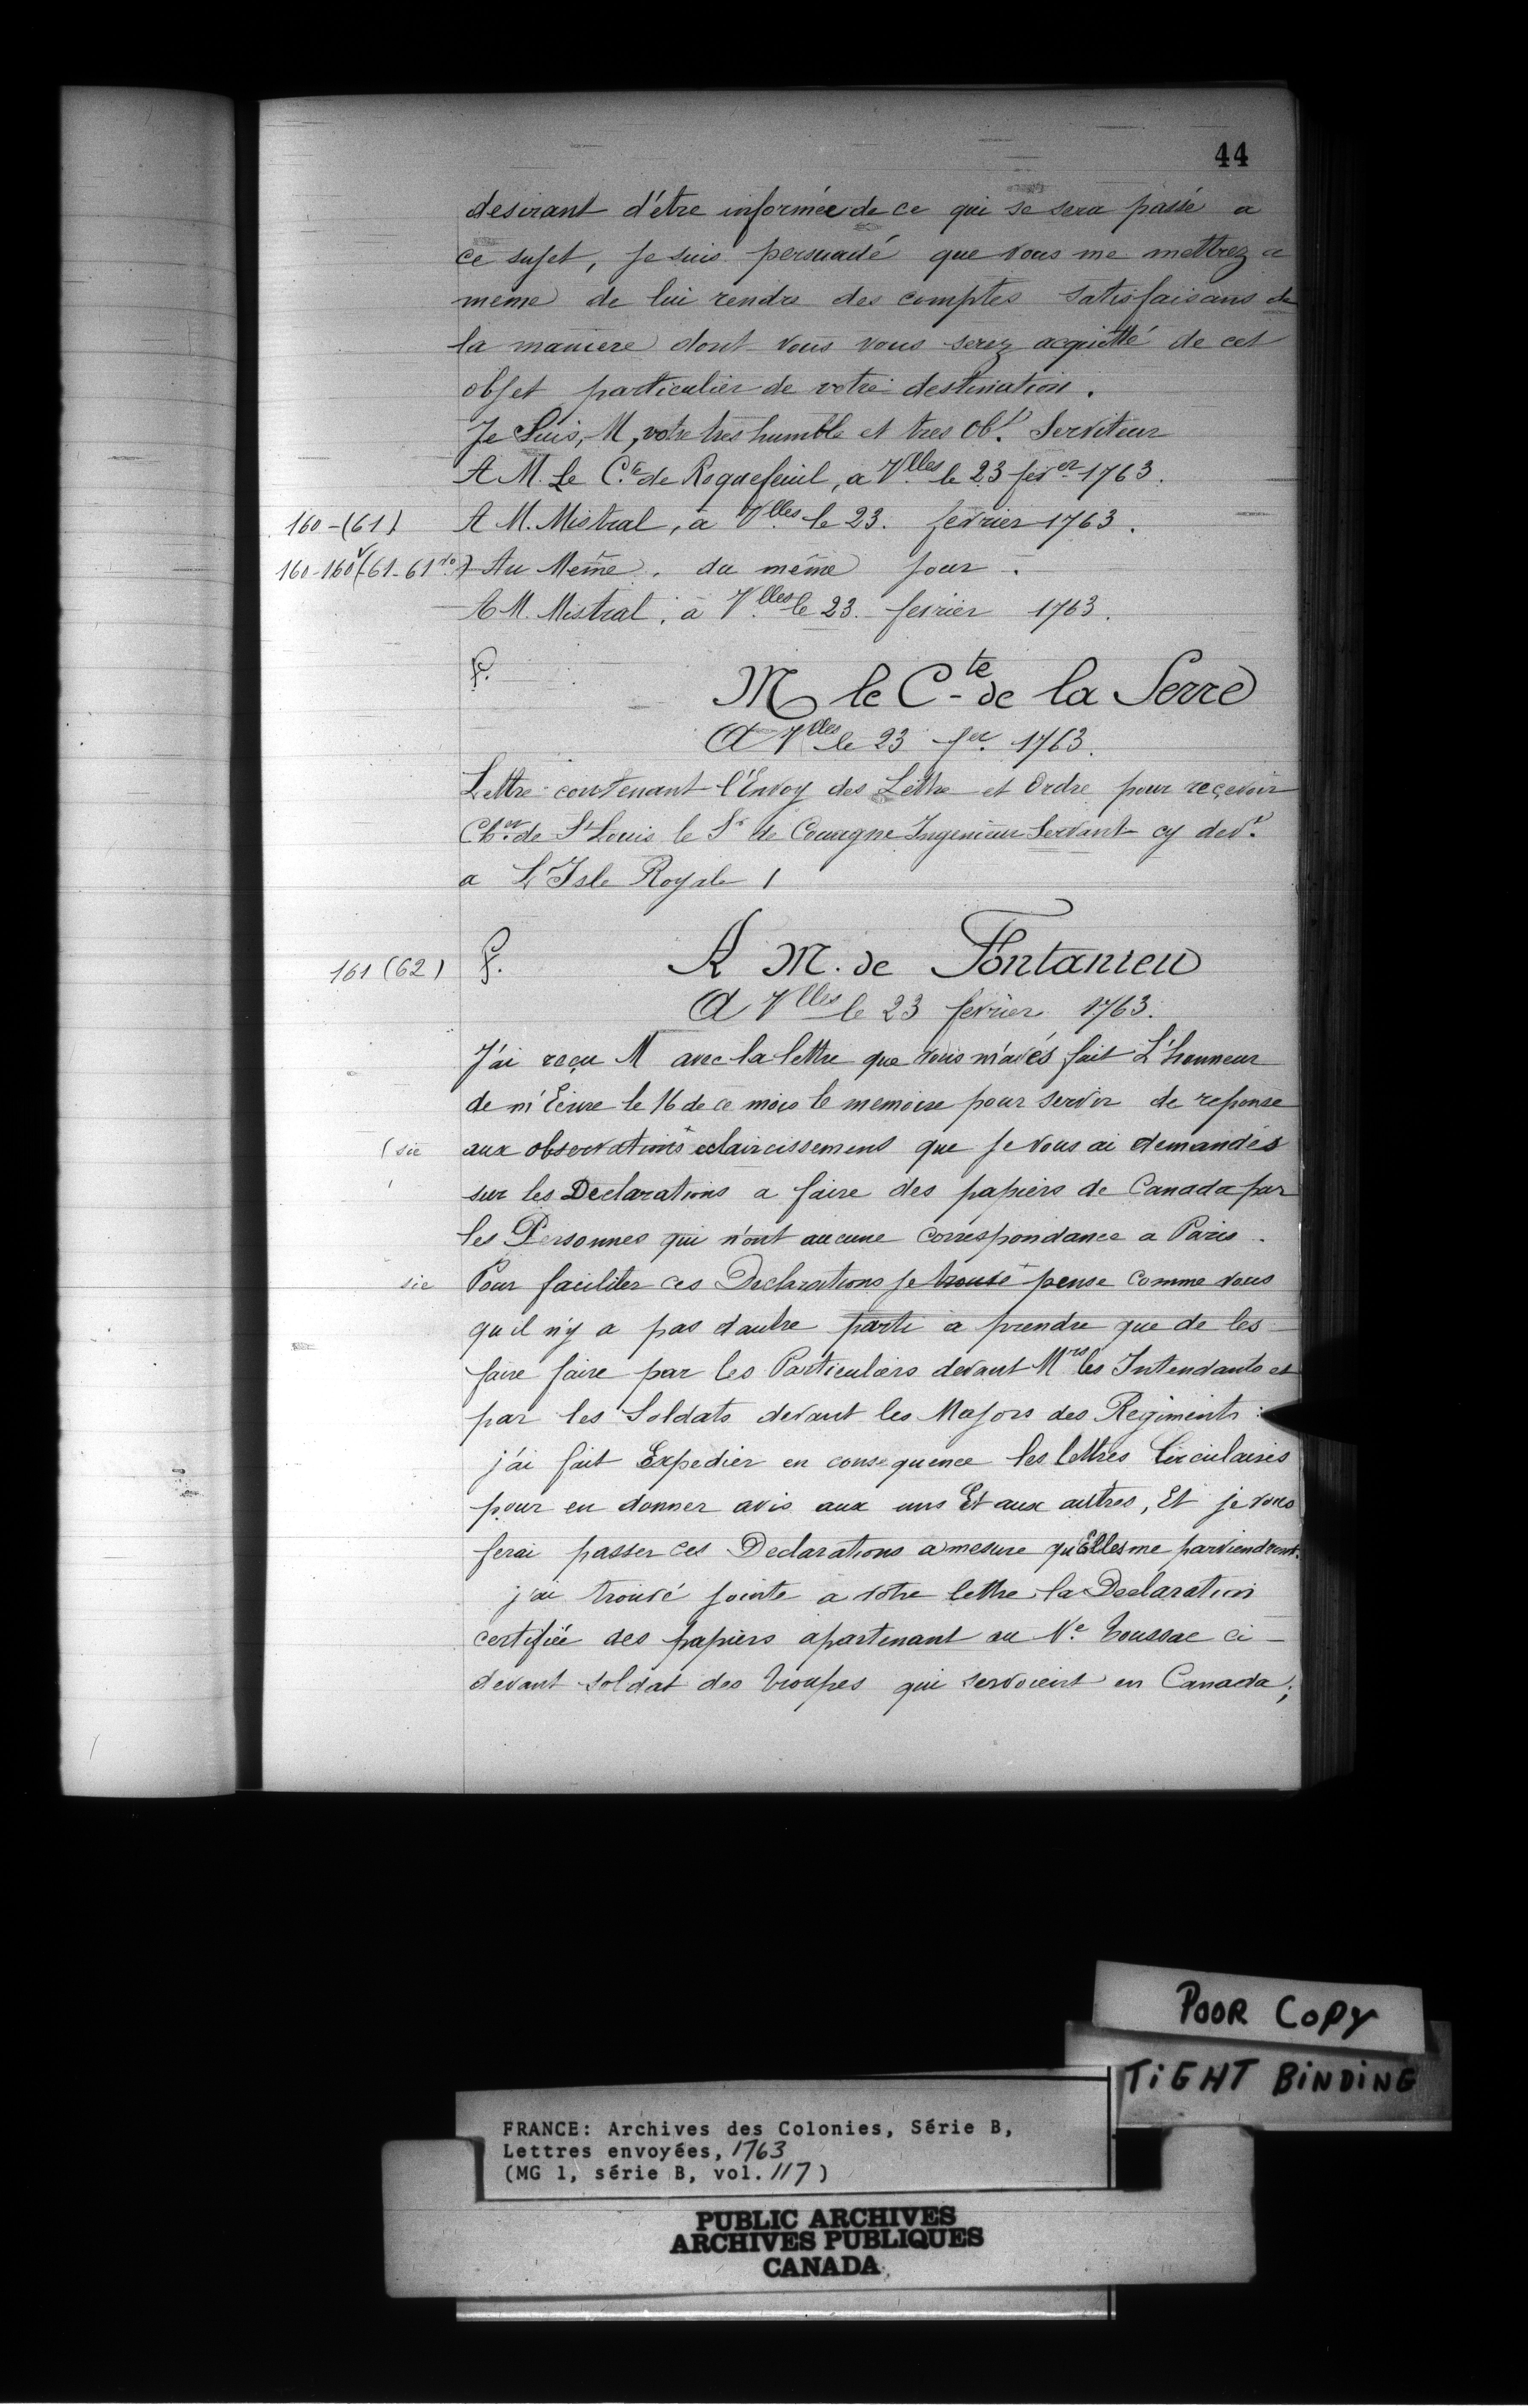 44
desirant d'être informée de ce qui se sera passé a
ce sujet, je suis persuadé que vous me mettrez a
meme de lui rendre des comptes satisfaisans de
la maniere dont vous vous serez acquitté de cet
objet particulier de votre destination.
Je Suis, M, votre tres humble et tres Obt. Serviteur
A M. Le Cte de Roquefeuil, a Vlles le 23 fever 1763.
160-(61) A M. Mistral, à Vlles le 23. fevrier 1763.
160-160v(61-61vo) Au Même. du même jour.
A M. Mistral, à Vlles le 23. fevrier 1763.
P. M le Cte de la Serre
A Vlles le 23 fer. 1763.
Lettre contenant l'Envoy des Lettre et Ordre pour reçevoir
Cher de St Louis le Sr de Couagne Ingenieur Servant cy devt
a L'Isle Royale /
161 (62) P. A M. de Fontanieu
A Vlles le 23 fevrier 1763.
J'ai reçu M avec la lettre que vous m'avés fait L'honneur
de m'Ecrire le 16 de ce mois le memoire pour servir de reponse
(sic aux observations + eclaircissemens que je vous ai demandés
sur les Declarations a faire des papiers de Canada par
les Personnes qui n'ont aucune correspondance a Paris.
sic Pour faciliter ces Declarations je trouve + pense comme vous
qu'il n'y a pas d'autre parti a prendre que de les
faire faire par les Particuliers devant Mrs les Intendants et
par les Soldats devant les Majors des Regiments :
j'ai fait Expedier en consequence les lettres Circulaires
pour en donner avis aux uns Et aux autres, Et je vous
ferai passer ces Declarations a mesure qu'Elles me parviendront.
j'ai trouvé jointe a votre lettre la Declaration
certifiée des papiers apartenant au Ne. Toussac ci-
devant soldat des troupes qui servoient en Canada;
POOR COPY
TIGHT BINDING
FRANCE: Archives des Colonies, Série B,
Lettres envoyées, 1763
(MG 1, série B, vol. 117)
PUBLIC ARCHIVES
ARCHIVES PUBLIQUES
CANADA